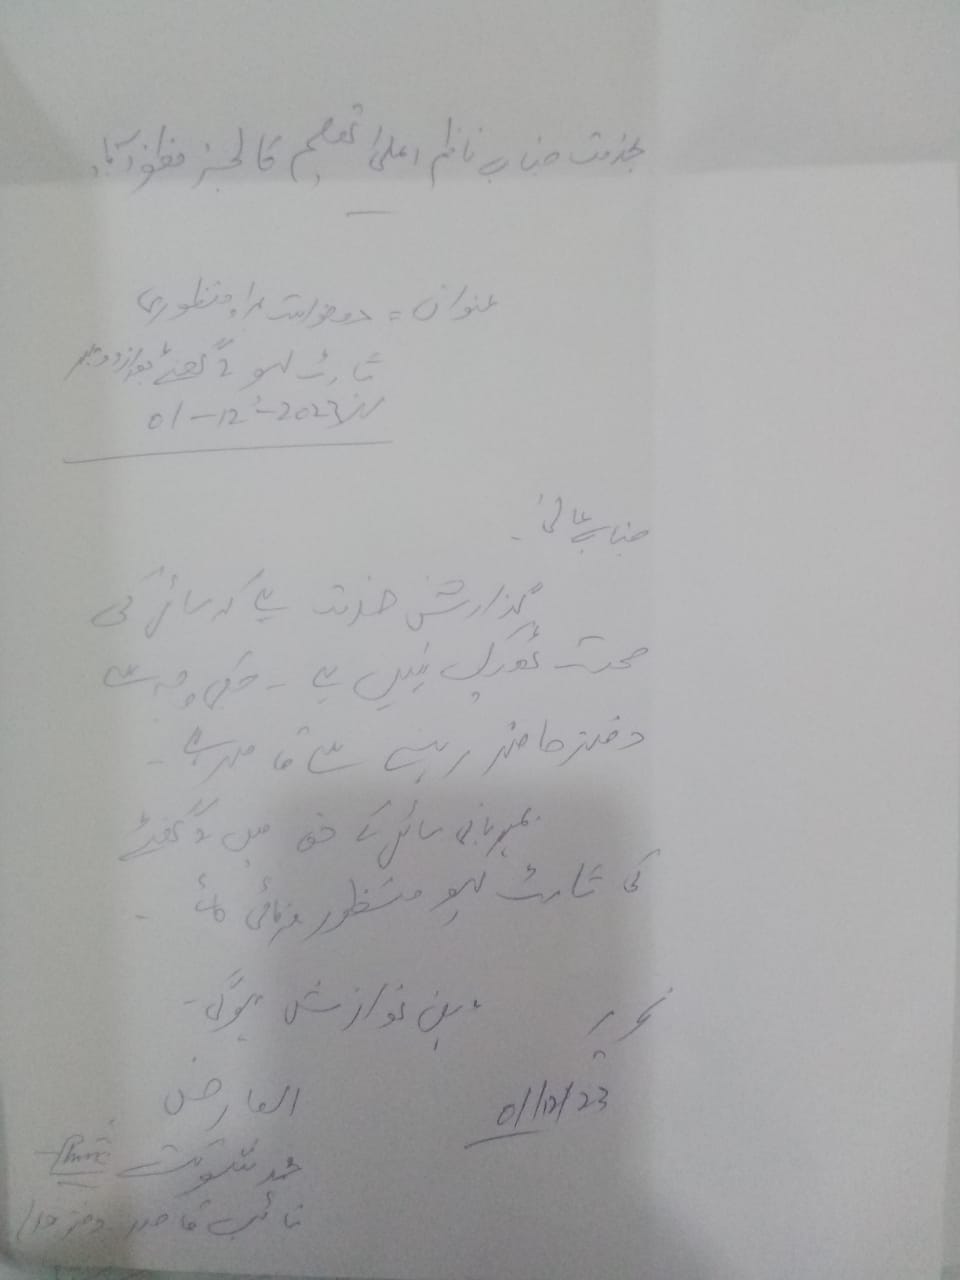 بخدمت جناب ناظم اعلیٰ تعلیم کالجز مظفرآباد
عنوان = درخواست براء منظوری
شارٹ لیو 2 گھنٹے بعد از دوپہر
01-12-2023
جناب عالی!
گذارش خدمت ہے کہ سائل کی
صحت ٹھیک نہیں ہے۔ جسکی وجہ سے
دفتر حاضر رہنے سے قاصر ہے۔
مہربانی سائل کے حق میں 2 گھنٹے
کی شارٹ لیو منظور فرمائی جائے۔
عین نوازش ہوگی۔
تحریر
01/12/23
العارض
محمد شوکت
نائب قاصد دفتر ھذا